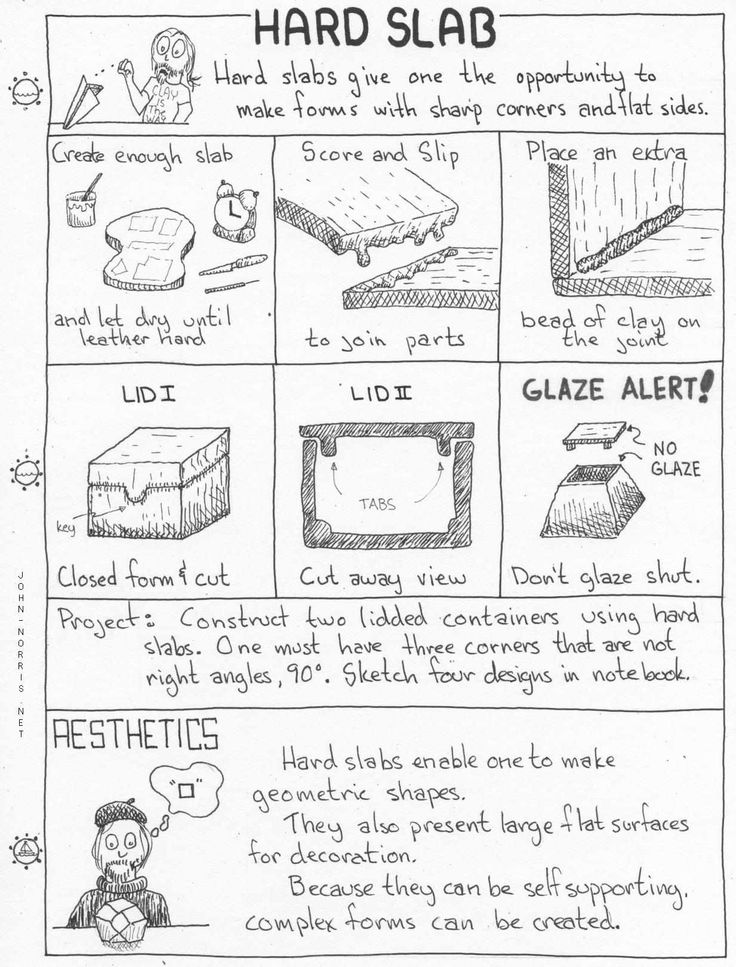 HARD SLAB
CLAY
IS
WAS
Hard slabs give one the opportunity to
make forms with sharp corners and flat sides.
Create enough slab
and let dry until
leather hard
Score and Slip
to join parts
Place an extra
bead of clay on
the joint
LID I
key
Closed form & cut
LID II
TABS
Cut away view
GLAZE ALERT!
NO
GLAZE
Don't glaze shut.
Project: Construct two lidded containers using hard
slabs. One must have three corners that are not
right angles, 90°. Sketch four designs in notebook.
JOHN-NORRIS.NET
AESTHETICS
"□"
Hard slabs enable one to make
geometric shapes.
They also present large flat surfaces
for decoration.
Because they can be self supporting,
complex forms can be created.